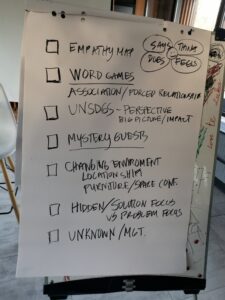 EMPATHY MAP
SAYS THINK
DOES FEELS
WORD GAMES
ASSOCIATION/FORCED RELATIONSHIP
UNSDGS - PERSPECTIVE
BIG PICTURE/IMPACT
MYSTERY GUESTS
CHANGING ENVIROMENT
LOCATIONSHIP
FURNITURE/SPACE CONF.
HIDDEN/SOLUTION FOCUS
VS PROBLEM FOCUS
UNKNOWN/MGT.